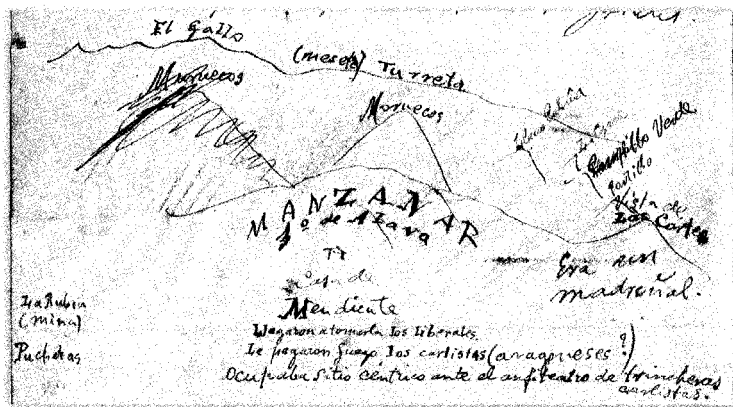 El Gallo
(meseta) Turreta
Moruecos
Moruecos
Campillo Verde
Castillo
Vista de
Las Cortes
MANZANAR
1º de Alava
Era un
madroñal.
casa de
Mendiente
La Rubia
(mina)
Pucheras
Llegaron a tomarla los liberales
Le pegaron fuego los carlistas (aragoneses?)
Ocupaba sitio céntrico ante el anfiteatro de trincheras
carlistas.